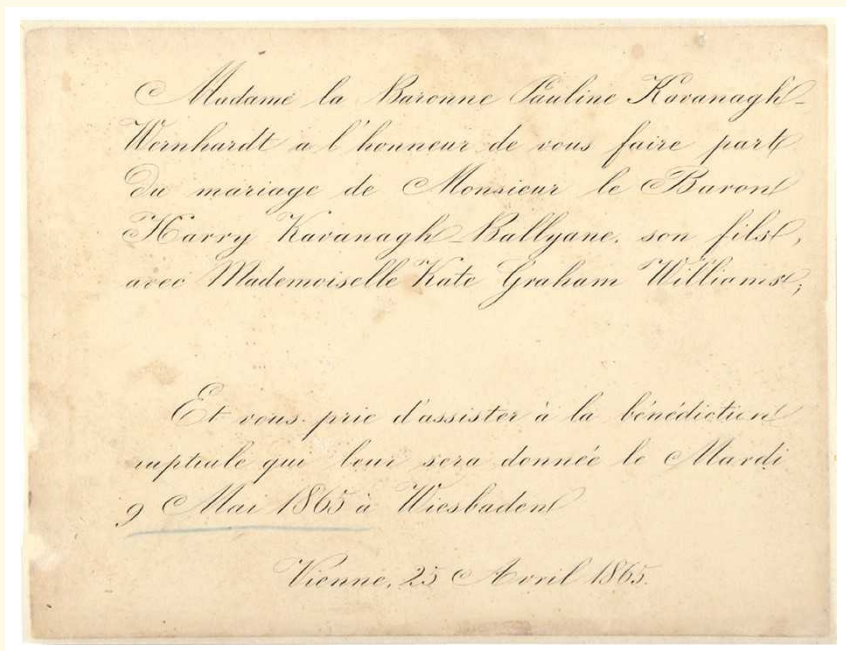 Madame la Baronne Pauline Kavanagh-
Wernhardt a l'honneur de vous faire part
du mariage de Monsieur le Baron
Harry Kavanagh-Ballyane, son fils,
avec Mademoiselle Kate Graham Williams;
Et vous prie d'assister à la bénédiction
nuptiale qui leur sera donnée le Mardi
9 Mai 1865 à Wiesbaden
Vienne, 25 Avril 1865.